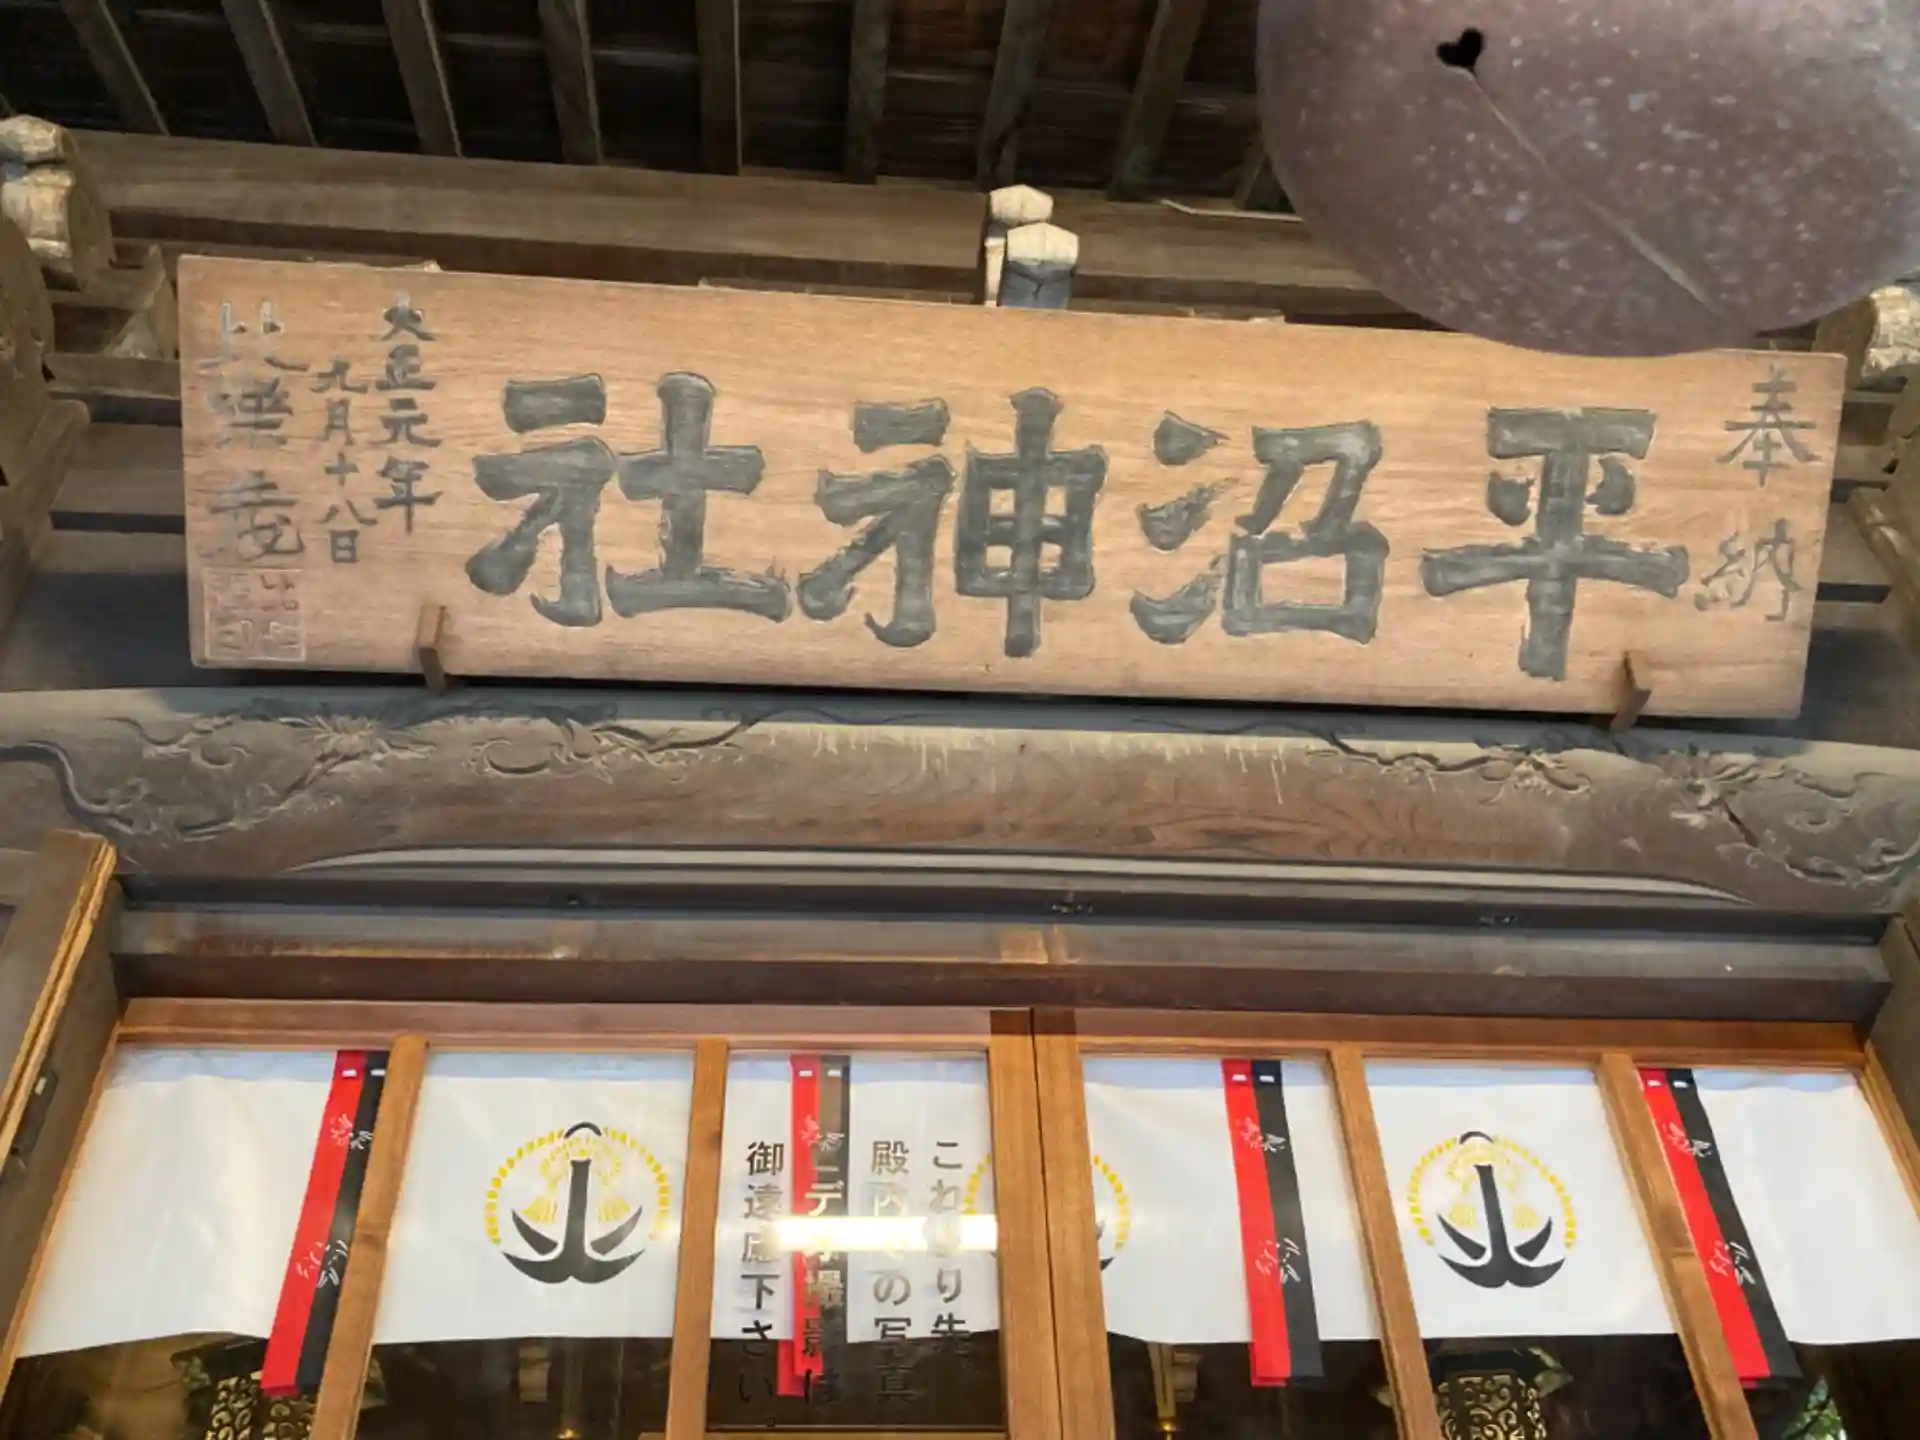 奉納
平沼神社
大正元年
九月十八日
これより先、
殿内での写真
ビデオ撮影は
御遠慮下さい。